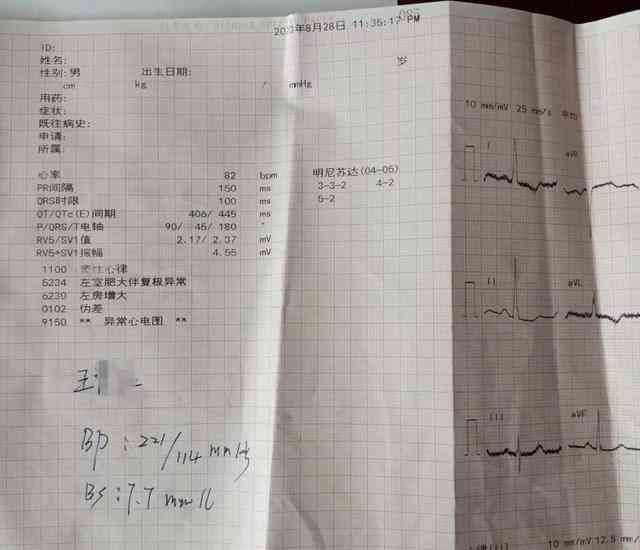 11:35:17 PM
ID:
姓名:
性别:男 出生日期: 岁
cm kg / mmHg
用药:
症状:
既往病史:
申请:
所属:
心率 82 bpm
PR间隔 150 ms
QRS时限 100 ms
QT/QTc(E)间期 406/ 445 ms
P/QRS/T电轴 90/ 45/ 180 °
RV5/SV1值 2.17/ 2.37 mV
RV5+SV1振幅 4.55 mV
明尼苏达(04-05)
3-3-2 4-2
5-2
1100 窦性心律
5234 左室肥大伴复极异常
6230 左房增大
0102 伪差
9150 ** 异常心电图 **
王
BP:221/114 mmHg
BS:7.7 mmol/L
10 mm/mV 25 mm/s 平均
I aVR
II aVL
III aVF
10 mm/mV 12.5 mm/